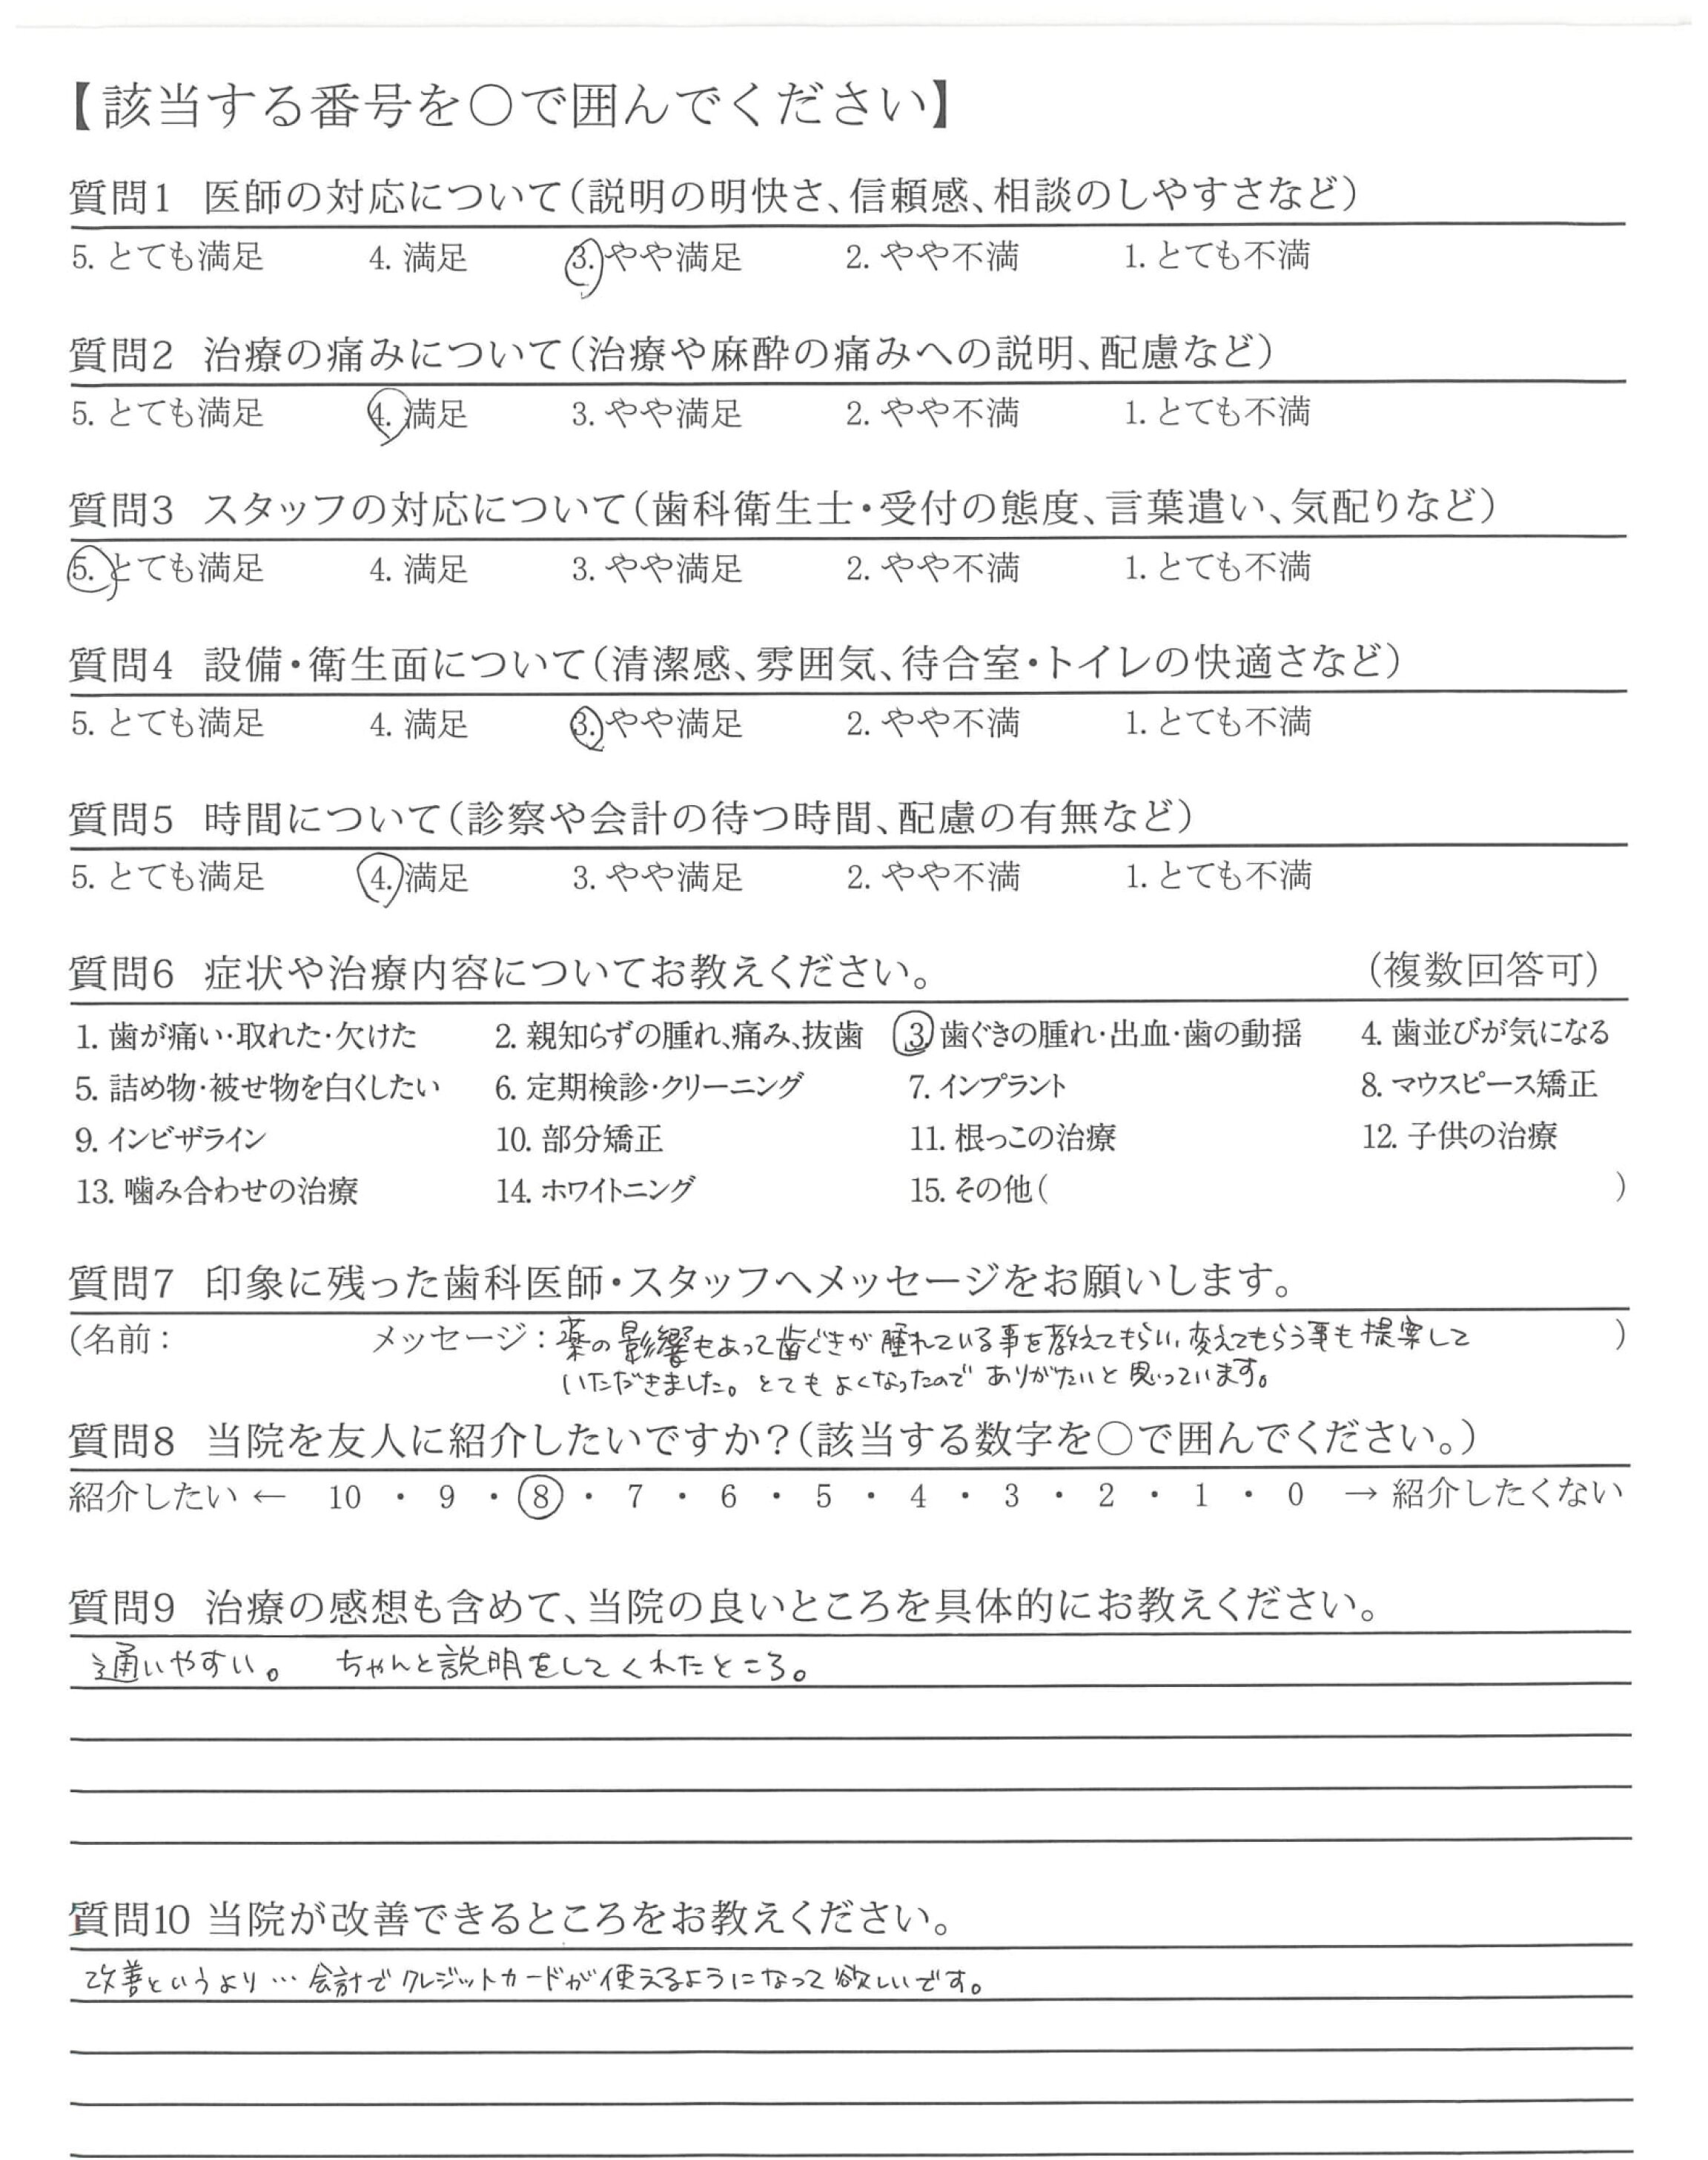 【該当する番号を○で囲んでください】
質問1 医師の対応について（説明の明快さ、信頼感、相談のしやすさなど）
5. とても満足 4. 満足 3. やや満足 2. やや不満 1. とても不満
質問2 治療の痛みについて（治療や麻酔の痛みへの説明、配慮など）
5. とても満足 4. 満足 3. やや満足 2. やや不満 1. とても不満
質問3 スタッフの対応について（歯科衛生士・受付の態度、言葉遣い、気配りなど）
5. とても満足 4. 満足 3. やや満足 2. やや不満 1. とても不満
質問4 設備・衛生面について（清潔感、雰囲気、待合室・トイレの快適さなど）
5. とても満足 4. 満足 3. やや満足 2. やや不満 1. とても不満
質問5 時間について（診察や会計の待つ時間、配慮の有無など）
5. とても満足 4. 満足 3. やや満足 2. やや不満 1. とても不満
質問6 症状や治療内容についてお教えください。 （複数回答可）
1. 歯が痛い・取れた・欠けた 2. 親知らずの腫れ、痛み、抜歯 3. 歯ぐきの腫れ・出血・歯の動揺 4. 歯並びが気になる
5. 詰め物・被せ物を白くしたい 6. 定期検診・クリーニング 7. インプラント 8. マウスピース矯正
9. インビザライン 10. 部分矯正 11. 根っこの治療 12. 子供の治療
13. 噛み合わせの治療 14. ホワイトニング 15. その他（ ）
質問7 印象に残った歯科医師・スタッフへメッセージをお願いします。
（名前： メッセージ：薬の影響もあって歯ぐきが腫れている事を教えてもらい、変えてもらう事も提案して ）
いただきました。とてもよくなったのでありがたいと思っています。
質問8 当院を友人に紹介したいですか？（該当する数字を○で囲んでください。）
紹介したい ← 10 ・ 9 ・ 8 ・ 7 ・ 6 ・ 5 ・ 4 ・ 3 ・ 2 ・ 1 ・ 0 → 紹介したくない
質問9 治療の感想も含めて、当院の良いところを具体的にお教えください。
通いやすい。 ちゃんと説明をしてくれたところ。
質問10 当院が改善できるところをお教えください。
改善というより…会計でクレジットカードが使えるようになって欲しいです。